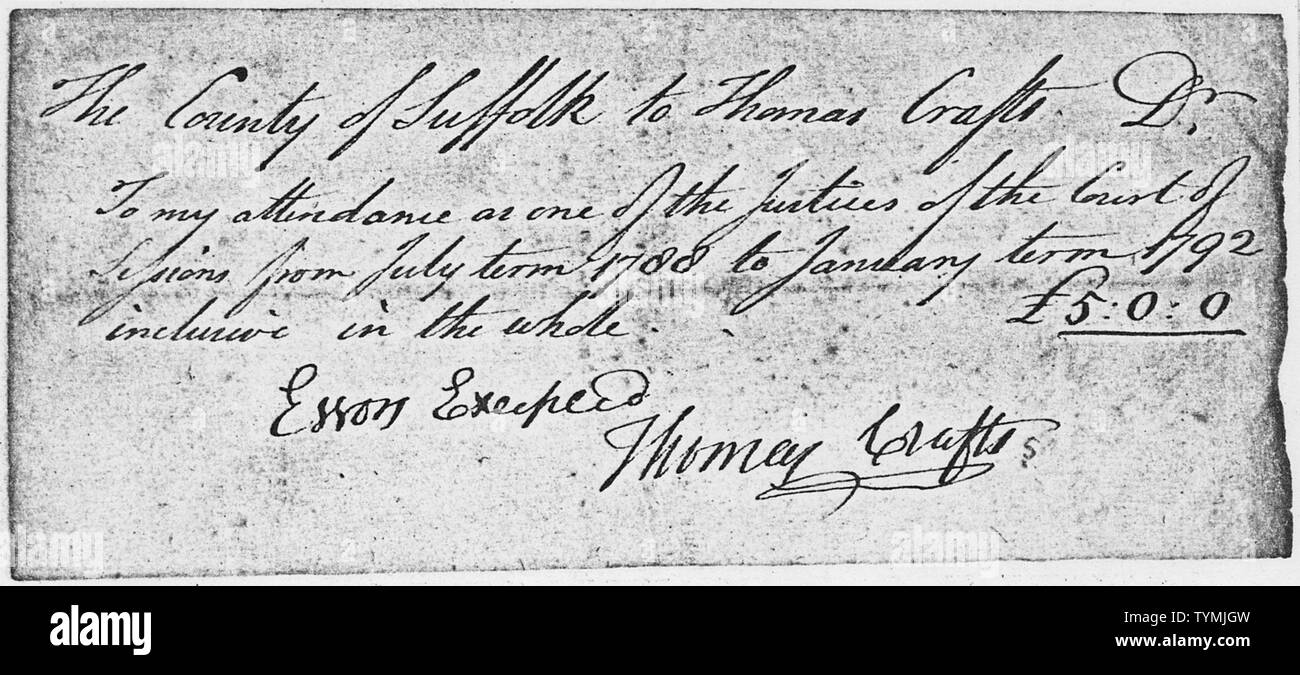 The County of Suffolk to Thomas Crafts. Dr
To my attendance as one of the Justices of the Court of
Sessions from July term 1788 to January term 1792
inclusive in the whole. £5:0:0
Errors Excepted
Thomas Crafts
alamy
alamy
Image ID: TYMJGW
www.alamy.com